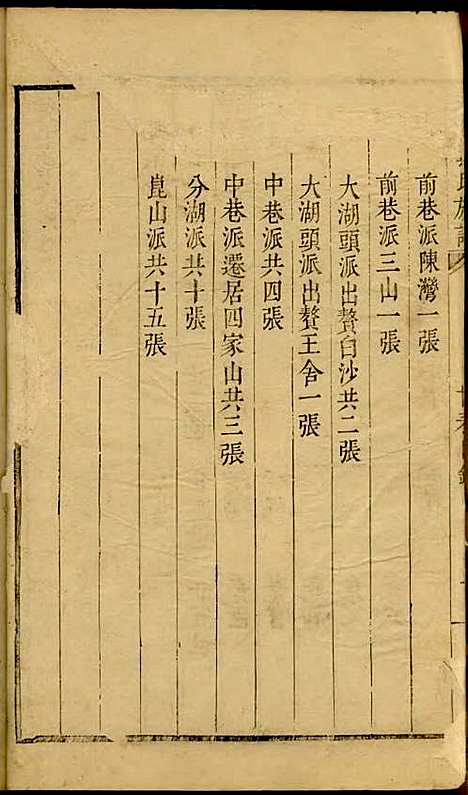 前巷派陳灣一張
前巷派三山一張
大湖頭派出贅白沙共二張
大湖頭派出贅王舍一張
中巷派共四張
中巷派遷居四家山共三張
分湖派共十張
崑山派共十五張